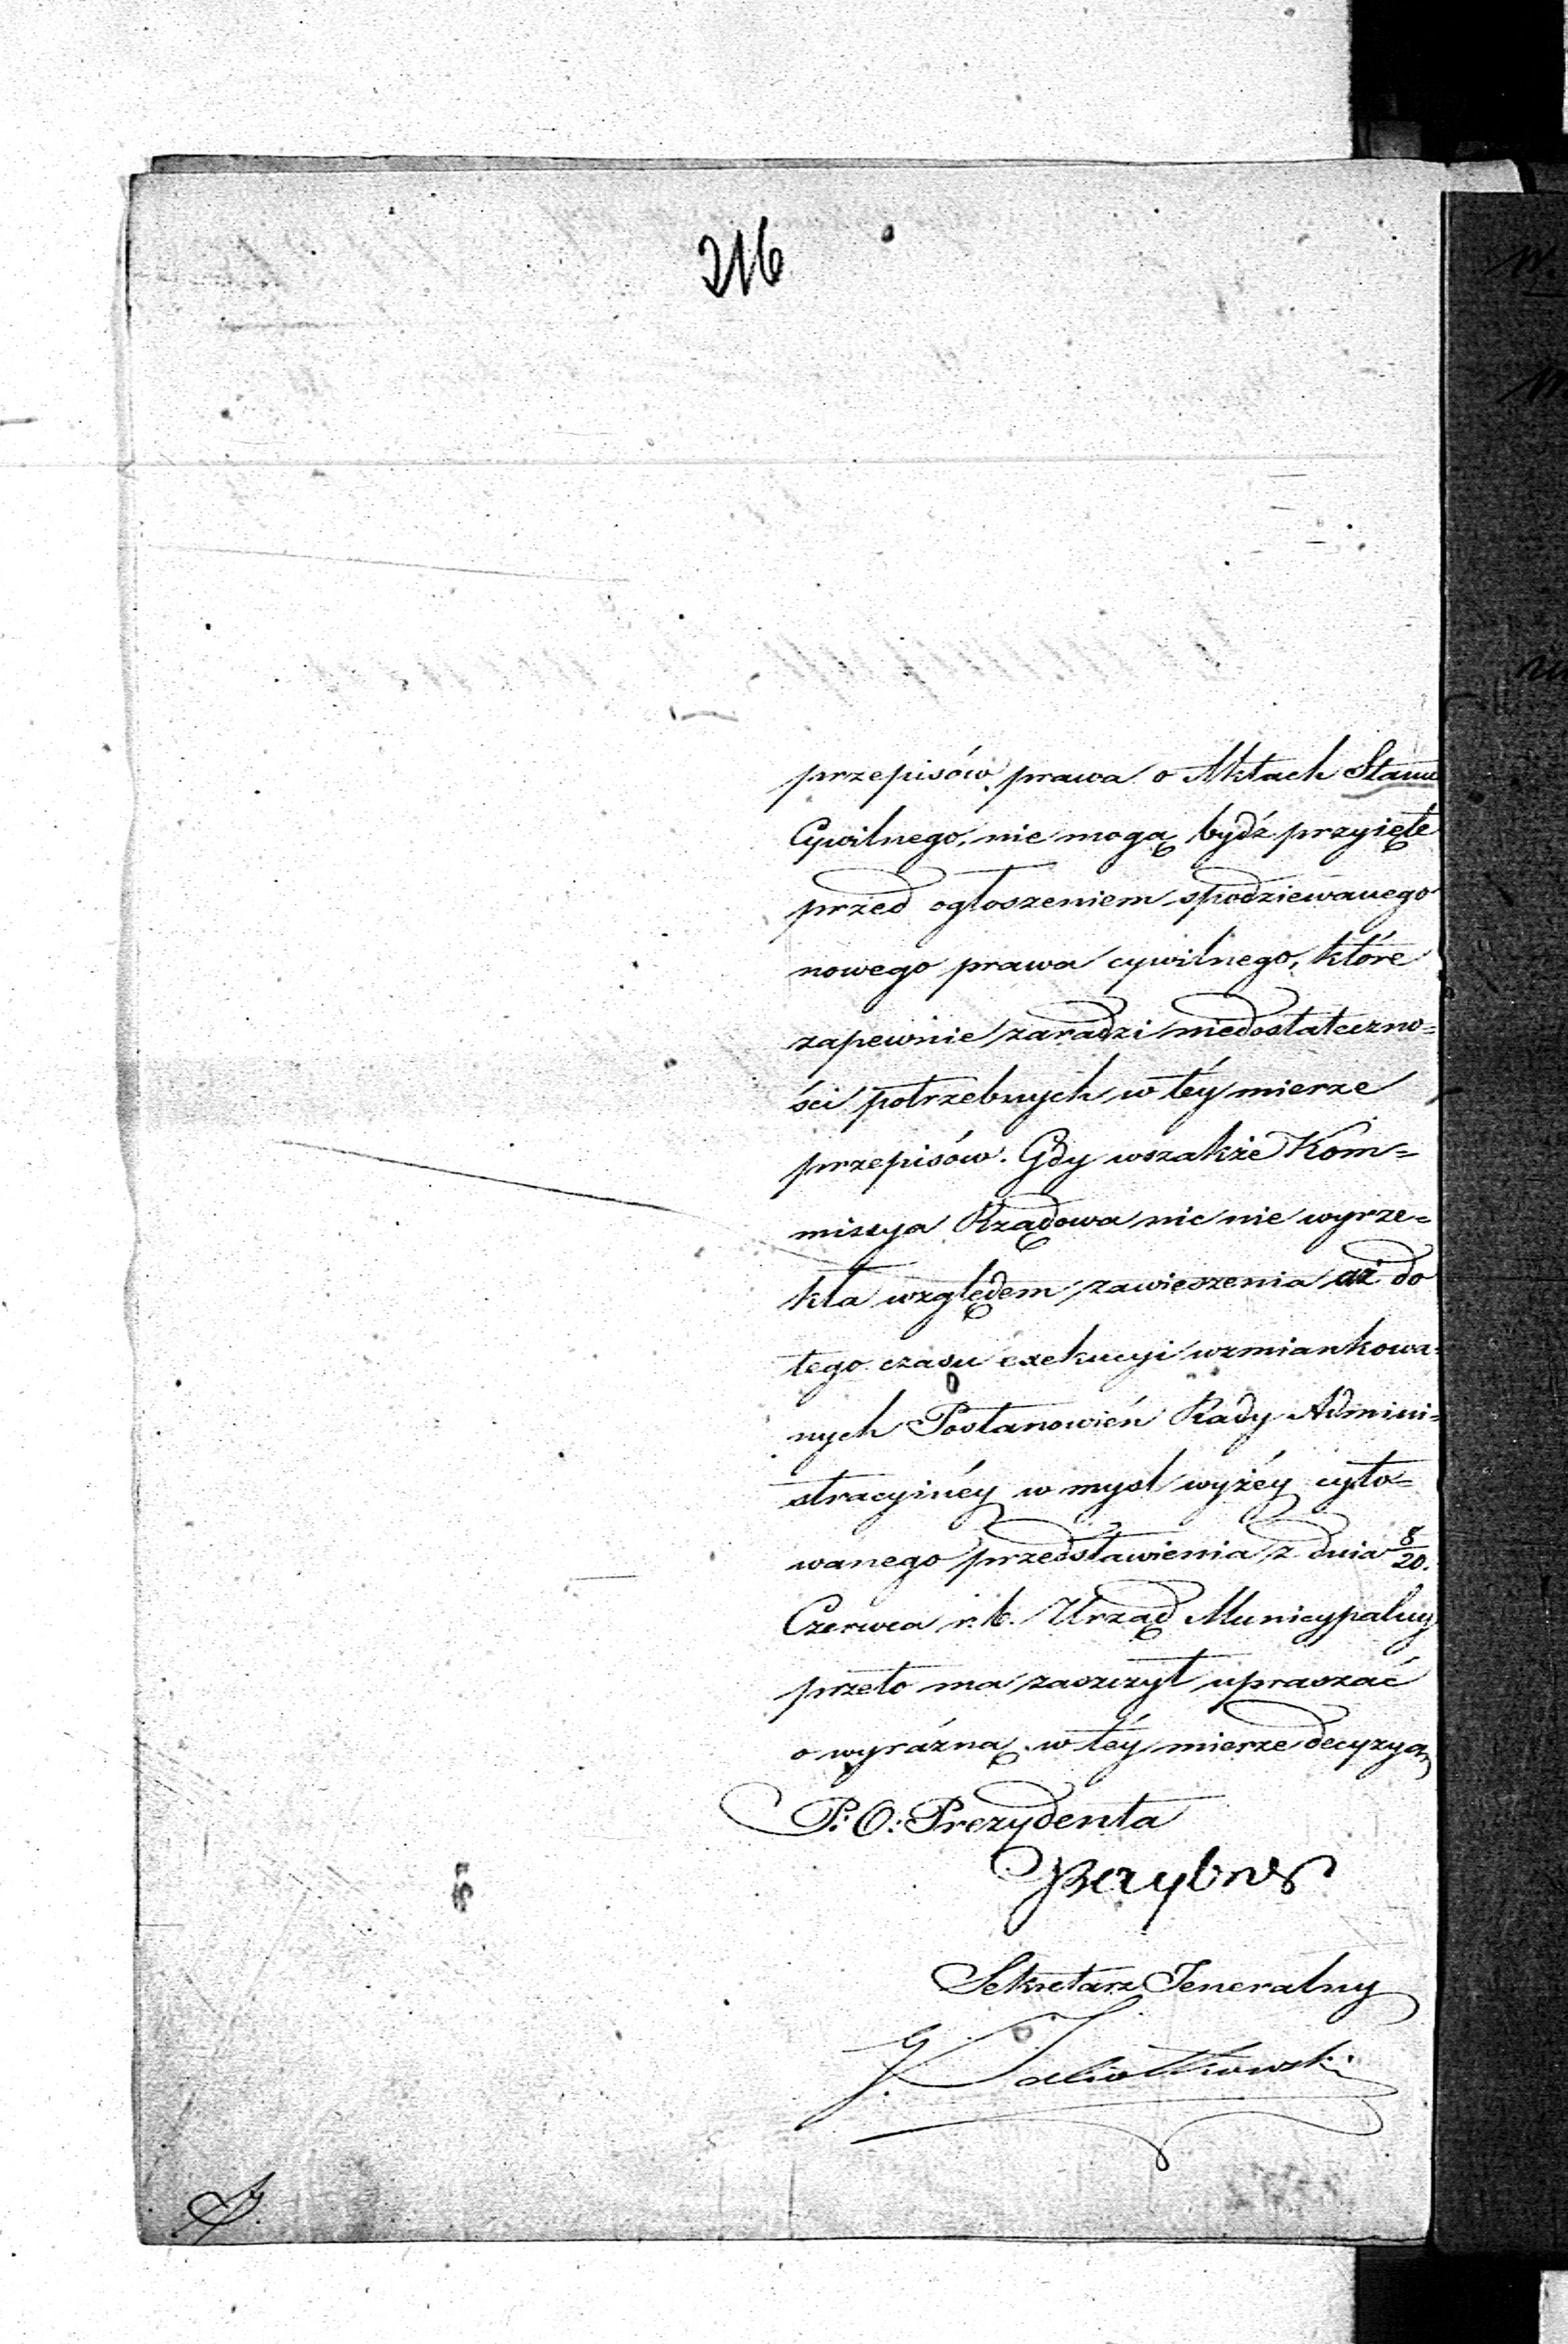 216
przepisów prawa o Aktach Stanu
Cywilnego, nie mogą bydź przyięte
przed ogłoszeniem spodziewanego
nowego prawa cywilnego, które
zapewnie zaradzi niedostateczno=
ści potrzebnych w téy mierze
przepisów. Gdy wszakże Kom=
missya Rządowa nic nie wyrze=
kła względem zawieszenia aż do
tego czasu exekucyi wzmiankowa=
nych Postanowień Rady Admini=
stracyinéy w mysl wyżéy cyto=
wanego przedstawienia z dnia 8/20.
Czerwca r. b. Urząd Municypalny
przeto ma zaszczyt upraszać
o wyráźną w téy mierze decyzyą
P: O: Prezydenta
Sekretarz Jeneralny